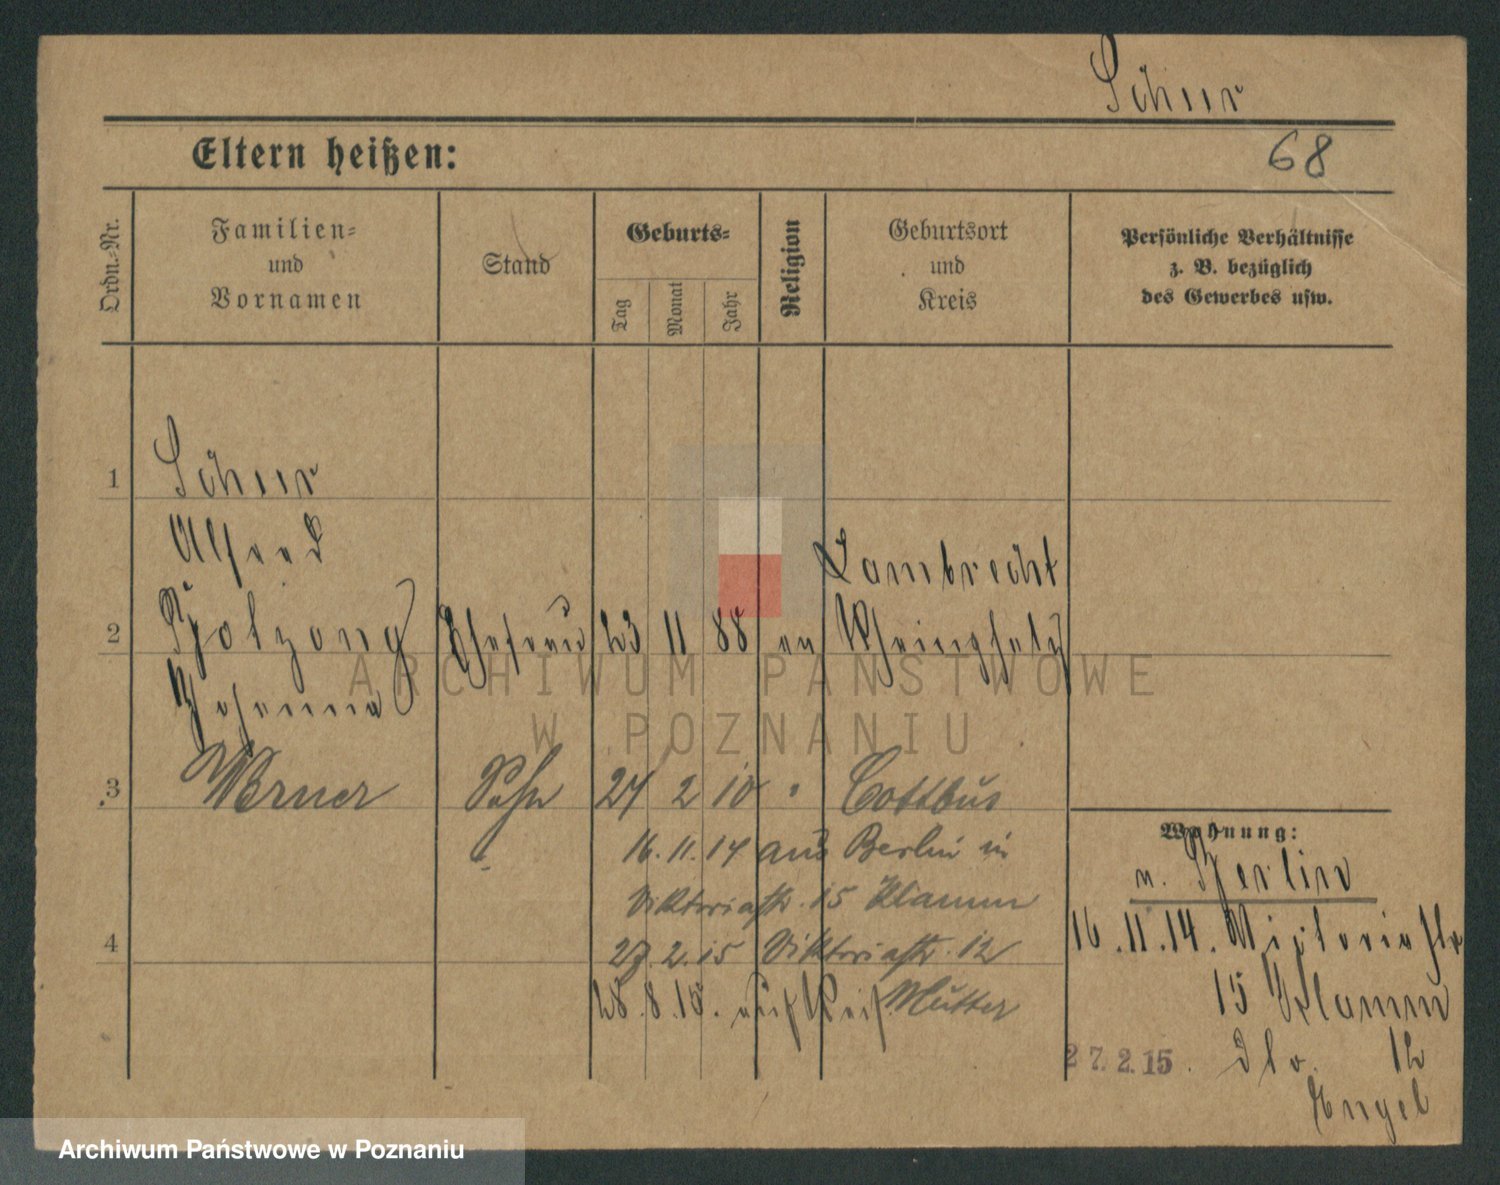 Schur
Eltern heißen:
68
Ordn.-Nr.
Familien-
und
Vornamen
Stand
Geburts-
Tag
Monat
Jahr
Religion
Geburtsort
und
Kreis
Persönliche Verhältnisse
z. B. bezüglich
des Gewerbes usw.
1
Schur
Alfred
Lambrecht
2
Ehefrau 23 11 88 ev Rheinpfalz
Johanna
3 Werner Sohn 27 2 10 " Cottbus
Wohnung:
16.11.14 aus Berlin in
v. Berlin
Viktoriastr. 15 Klamm
16.11.14. Victoriastr
4
27.2.15 Viktoriastr. 12
15 Klamm
28.8.15. auf Reis. Mutter
27.2.15. 12
Engel
ARCHIWUM PAŃSTWOWE
W POZNANIU
Archiwum Państwowe w Poznaniu